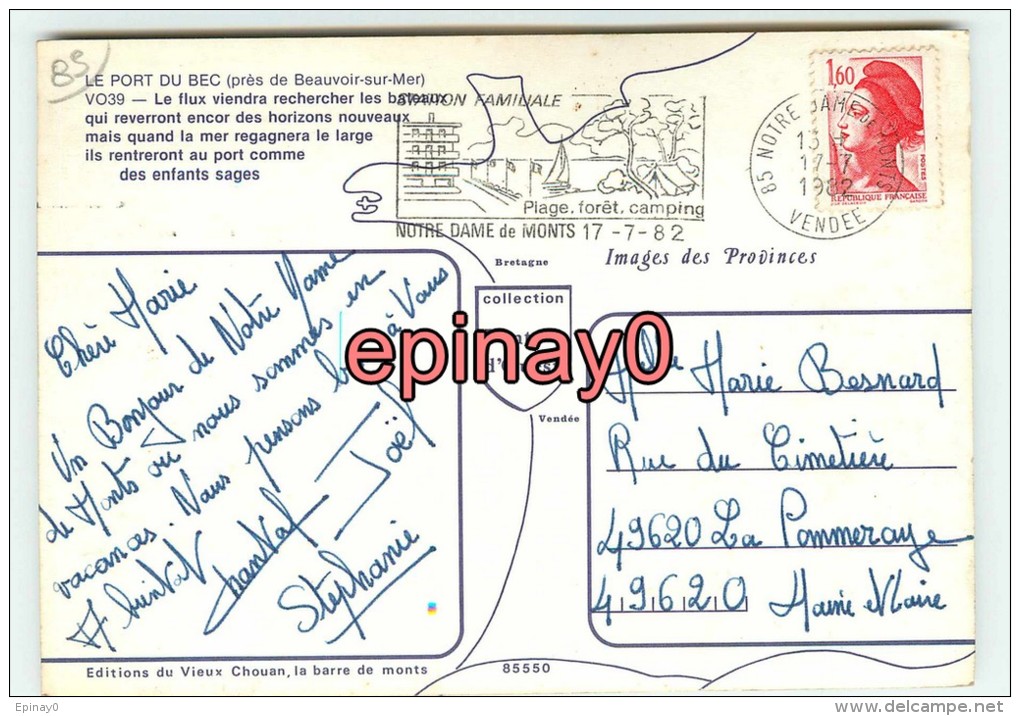 BS
LE PORT DU BEC (près de Beauvoir-sur-Mer)
VO39 — Le flux viendra rechercher les bateaux
qui reverront encor des horizons nouveaux
mais quand la mer regagnera le large
ils rentreront au port comme
des enfants sages
STATION FAMILIALE
Plage, forêt, camping
NOTRE DAME de MONTS 17 -7-82
85 NOTRE DAME DE MONTS
17-7
1982
VENDEE
1,60
POSTES
REPUBLIQUE FRANÇAISE
Bretagne
Images des Provinces
collection
Vendée
epinay0
Chère Marie
Un Bonjour de Notre Dame
de Monts où nous sommes en
vacances. Nous pensons à Vous
A bientôt
Chantal Joël
Stéphanie
Mlle Marie Besnard
Rue du Cimetière
49620 La Pommeraye
49620 Maine et Loire
Editions du Vieux Chouan, la barre de monts
85550
Epinay0
http://www.delcampe.net